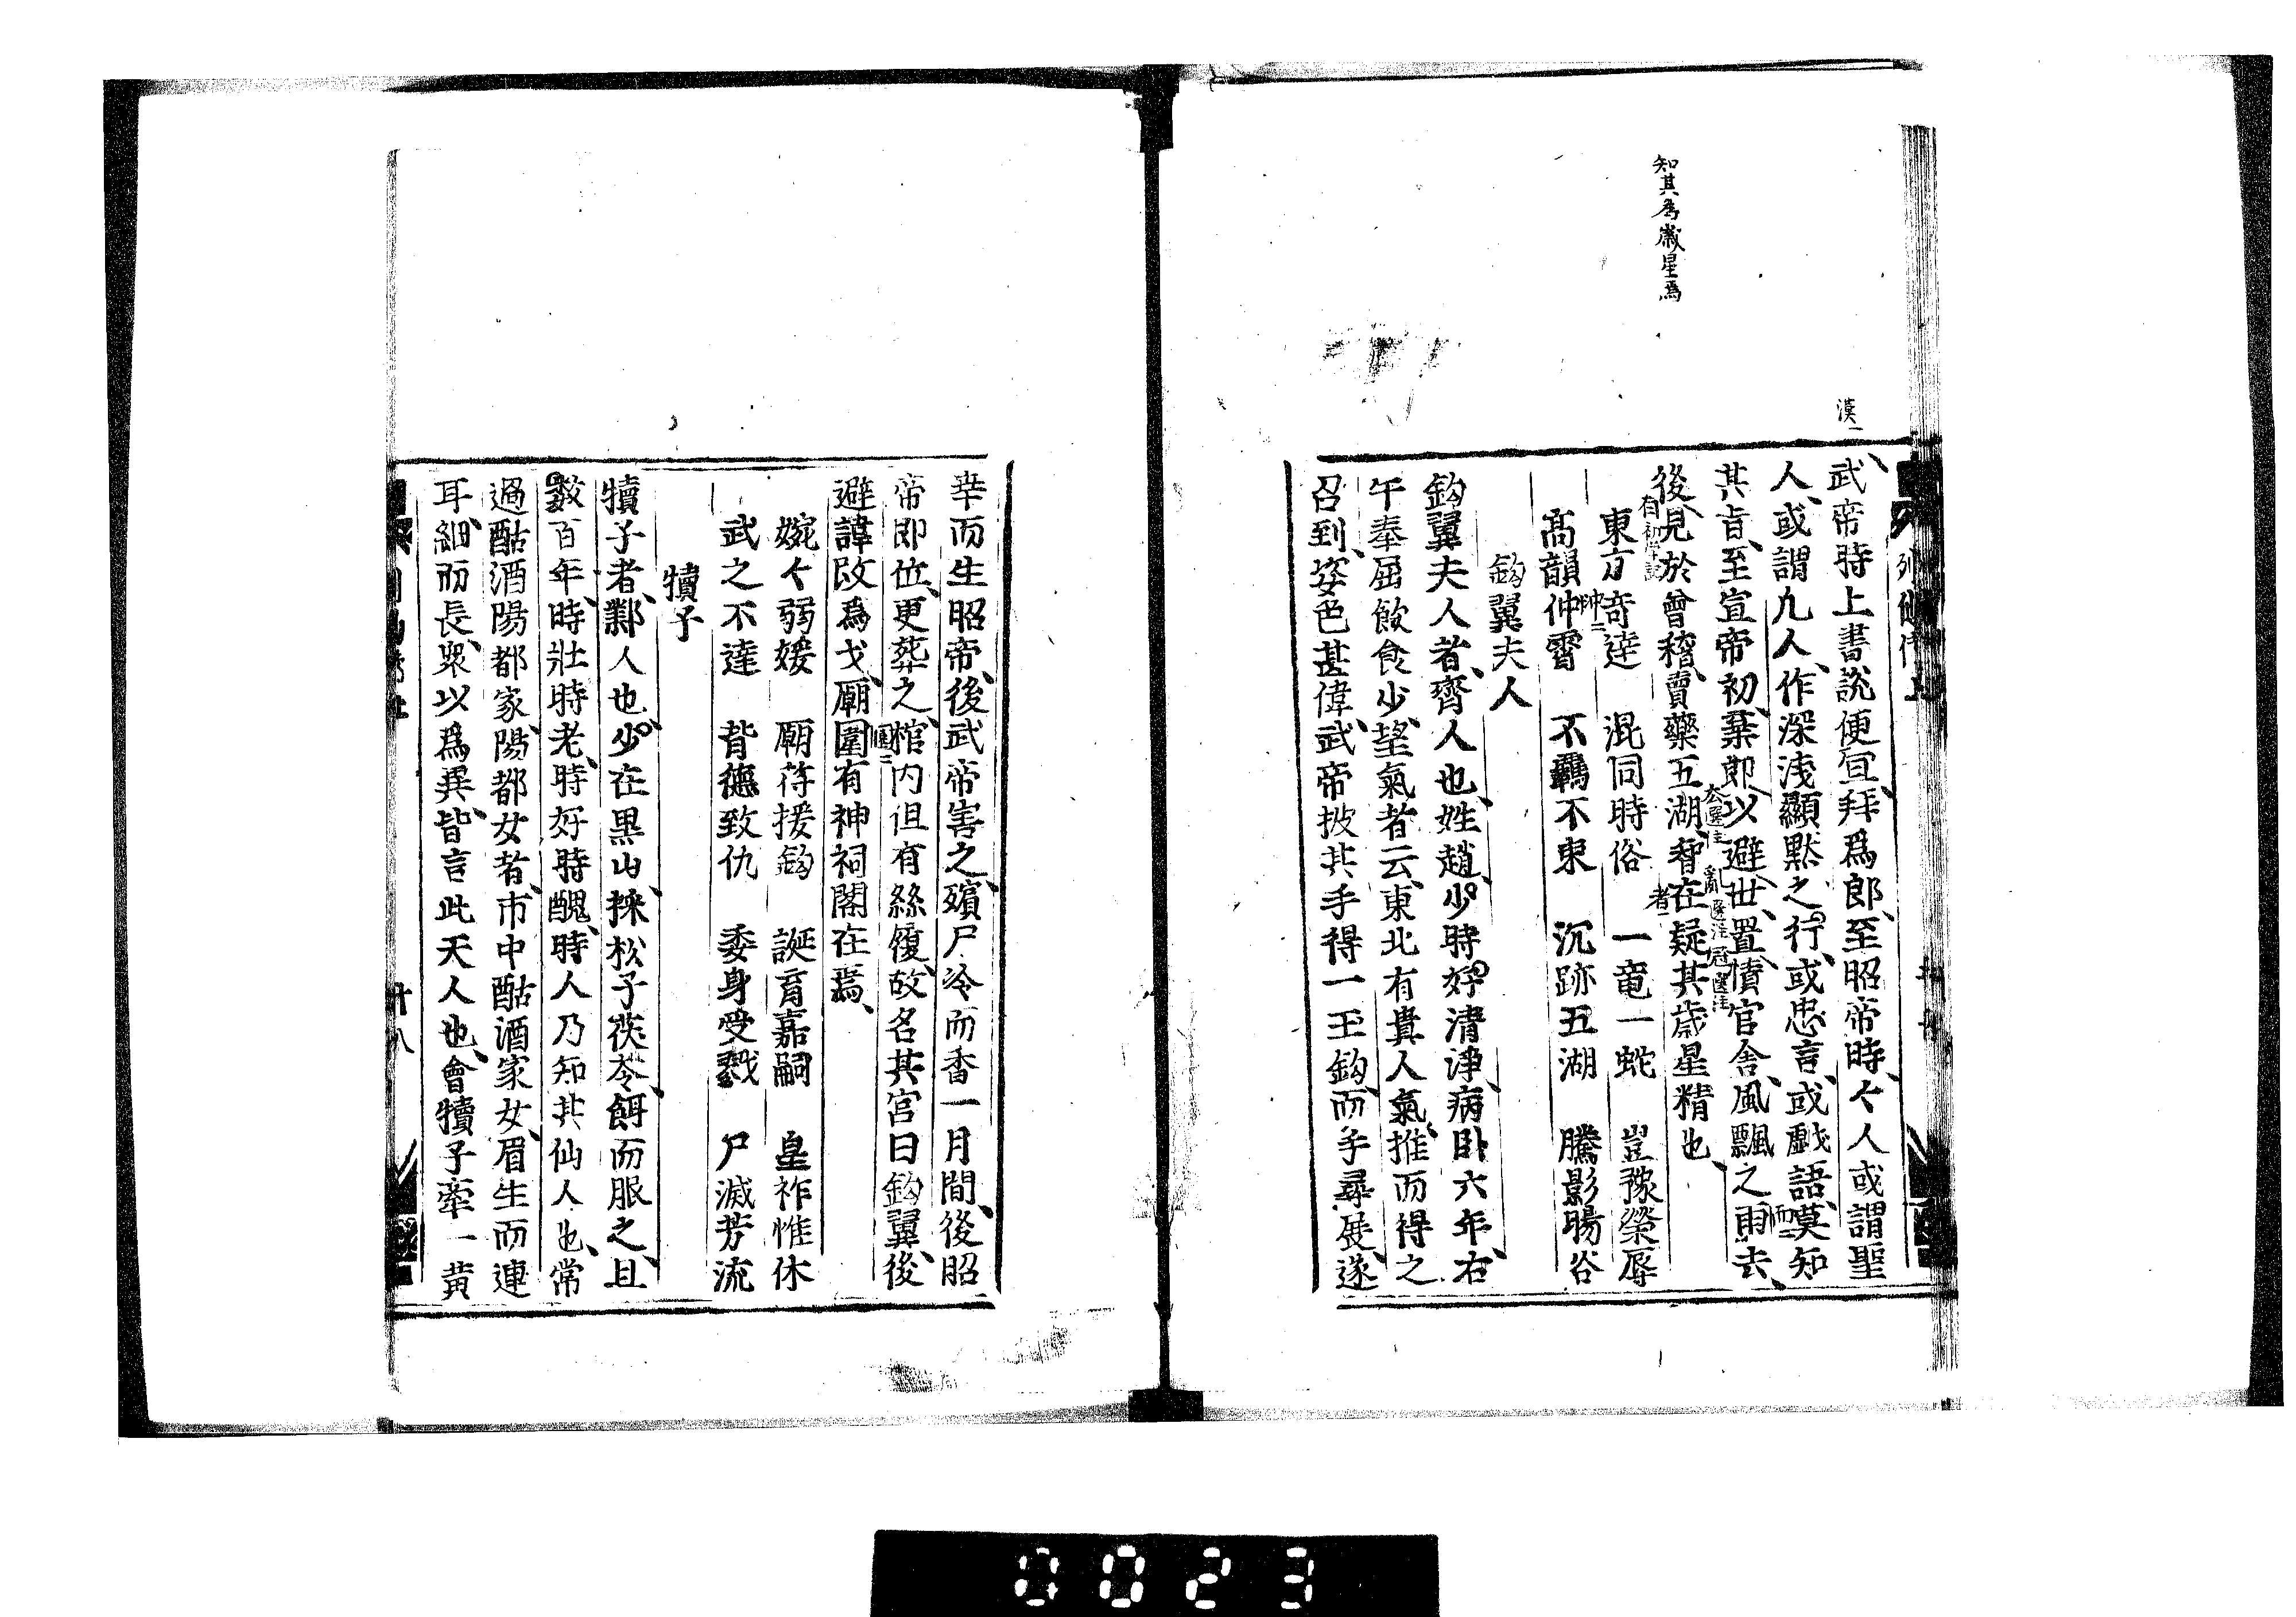 知其為歲星焉
漢
列仙傳上
武帝時上書說便宜拜爲郎至昭帝時々人或謂聖
人或謂凡人作深淺顯黙之行或忠言或戲語莫知
其旨至宣帝初棄郎以避世置幘官舍風飄之而去
後見於會稽賣藥五湖智在疑其歲星精也
東方奇達　混同時俗　一竜一蛇　豈豫榮辱
髙韻仲霄　不羈不束　沉跡五湖　騰影暘谷
鈎翼夫人
鈎翼夫人者齊人也姓趙少時好清淨病卧六年右
手奉屈飲食少望氣者云東北有貴人氣推而得之
召到姿色甚偉武帝披其手得一玉鈎而手尋展遂
幸而生昭帝後武帝害之殯尸冷而香一月間後昭
帝即位更葬之棺内但有絲履故名其宮曰鈎翼後
避諱改爲弋廟闈有神祠閣在焉
婉々弱媛　廟符授鈎　誕育嘉嗣　皇祚惟休
武之不達　背德致仇　委身受戮　尸滅芳流
犢子
犢子者鄴人也少在黒山採松子茯苓餌而服之且
數百年時壯時老時好時醜時人乃知其仙人也常
過酤酒陽都家陽都女者市中酤酒家女眉生而連
耳細而長眾以爲異皆言此天人也會犢子牽一黄
十八
0023